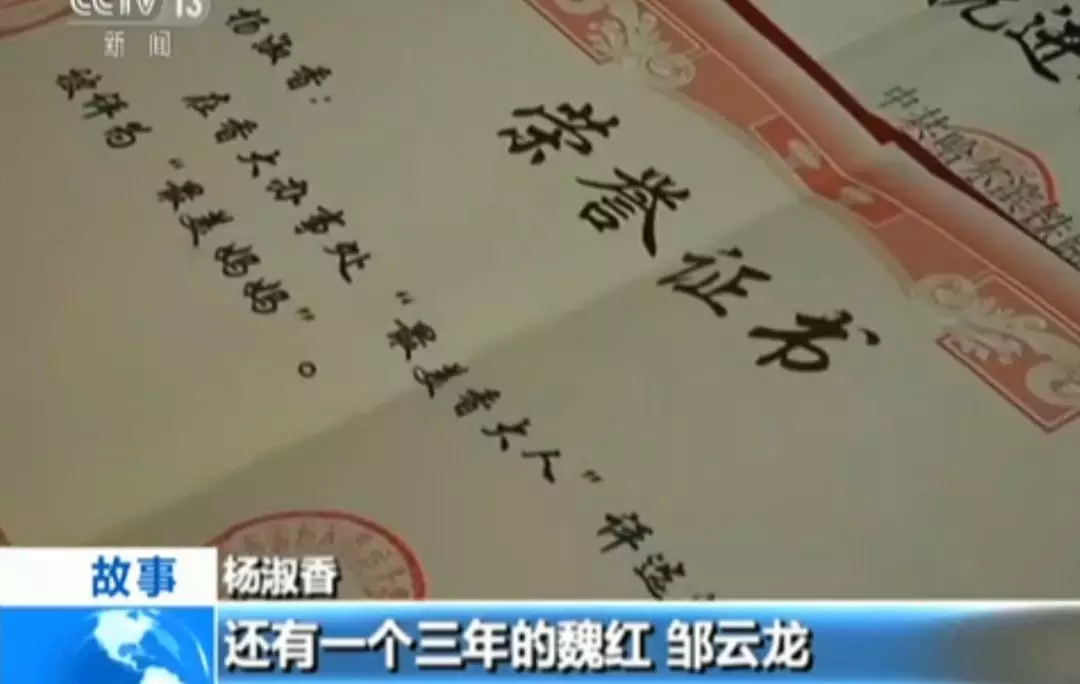 CCTV 13
新闻
荣誉证书
杨淑香：
在香大办事处“最美香大人”评选
被评为“最美妈妈”。
进
中共哈尔滨铁
故事
杨淑香
还有一个三年的魏红 邹云龙